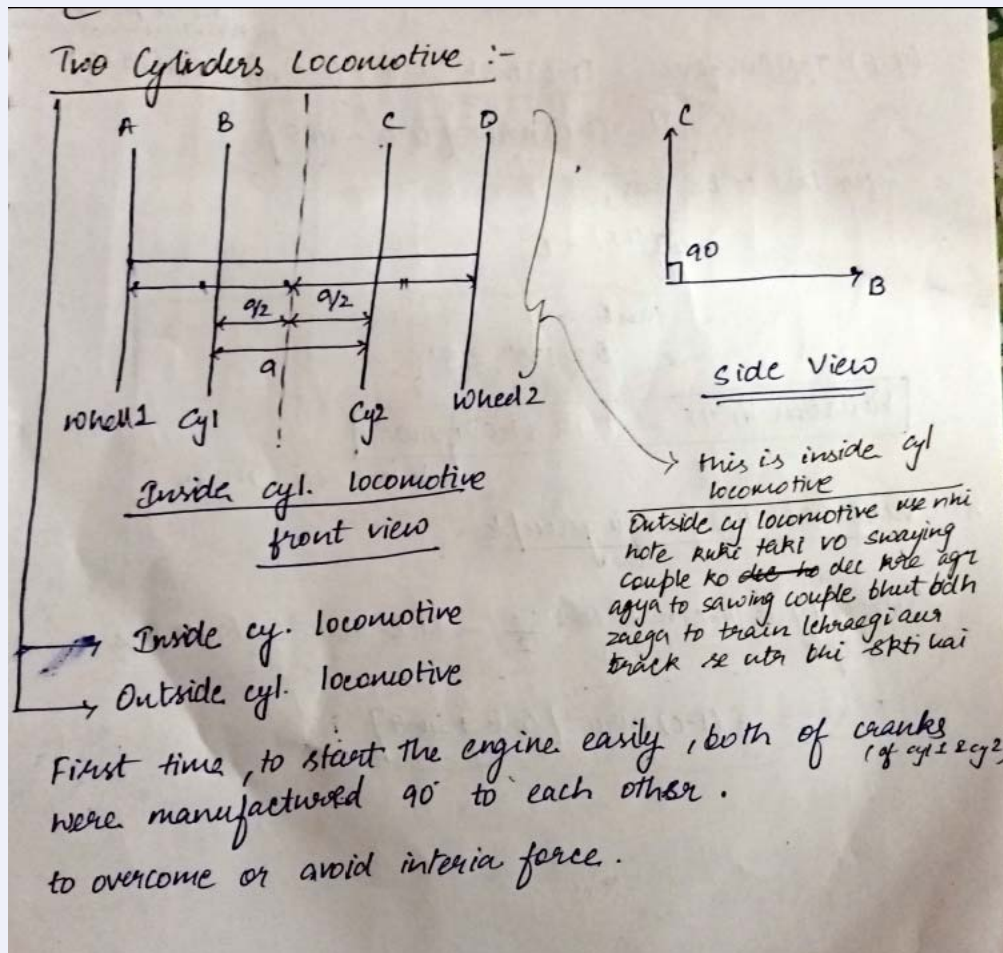 Two Cylinders Locomotive :-
A B C D
C
90
B
a/2 a/2
a
Side View
Wheel 1 Cyl Cy2 Wheel 2
Inside cyl. locomotive
front view
this is inside cyl
locomotive
Outside cy locomotive use nhi
hote kuki taki vo swaying
couple ko dec kre agr
agya to sawing couple bhut badh
zaega to train lehraegi aur
track se utr bhi skti hai
Inside cy. locomotive
Outside cyl. locomotive
First time, to start the engine easily, both of cranks
(of cyl 1 & cy 2)
were manufactured 90° to each other.
to overcome or avoid interia force.